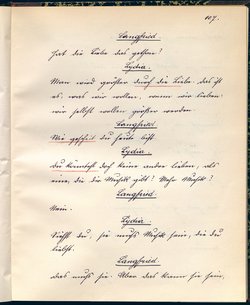 107.
Langfried
Hat die Liebe das gethan?
Lydia.
Man wird größer durch die Liebe. das ist
es, was wir wollen, wenn wir lieben:
wir selbst wollen größer werden
Langfried.
Wie gescheit du heute bist.
Lydia.
Du könntest doch keine andere lieben, als
eine, die die Musik gibt? Mehr Musik?
Langfried.
Nein.
Lydia.
Siehst du, sie muß Musik sein, die du
liebst.
Langfried.
Das muß sie. Aber das kann sie sein,